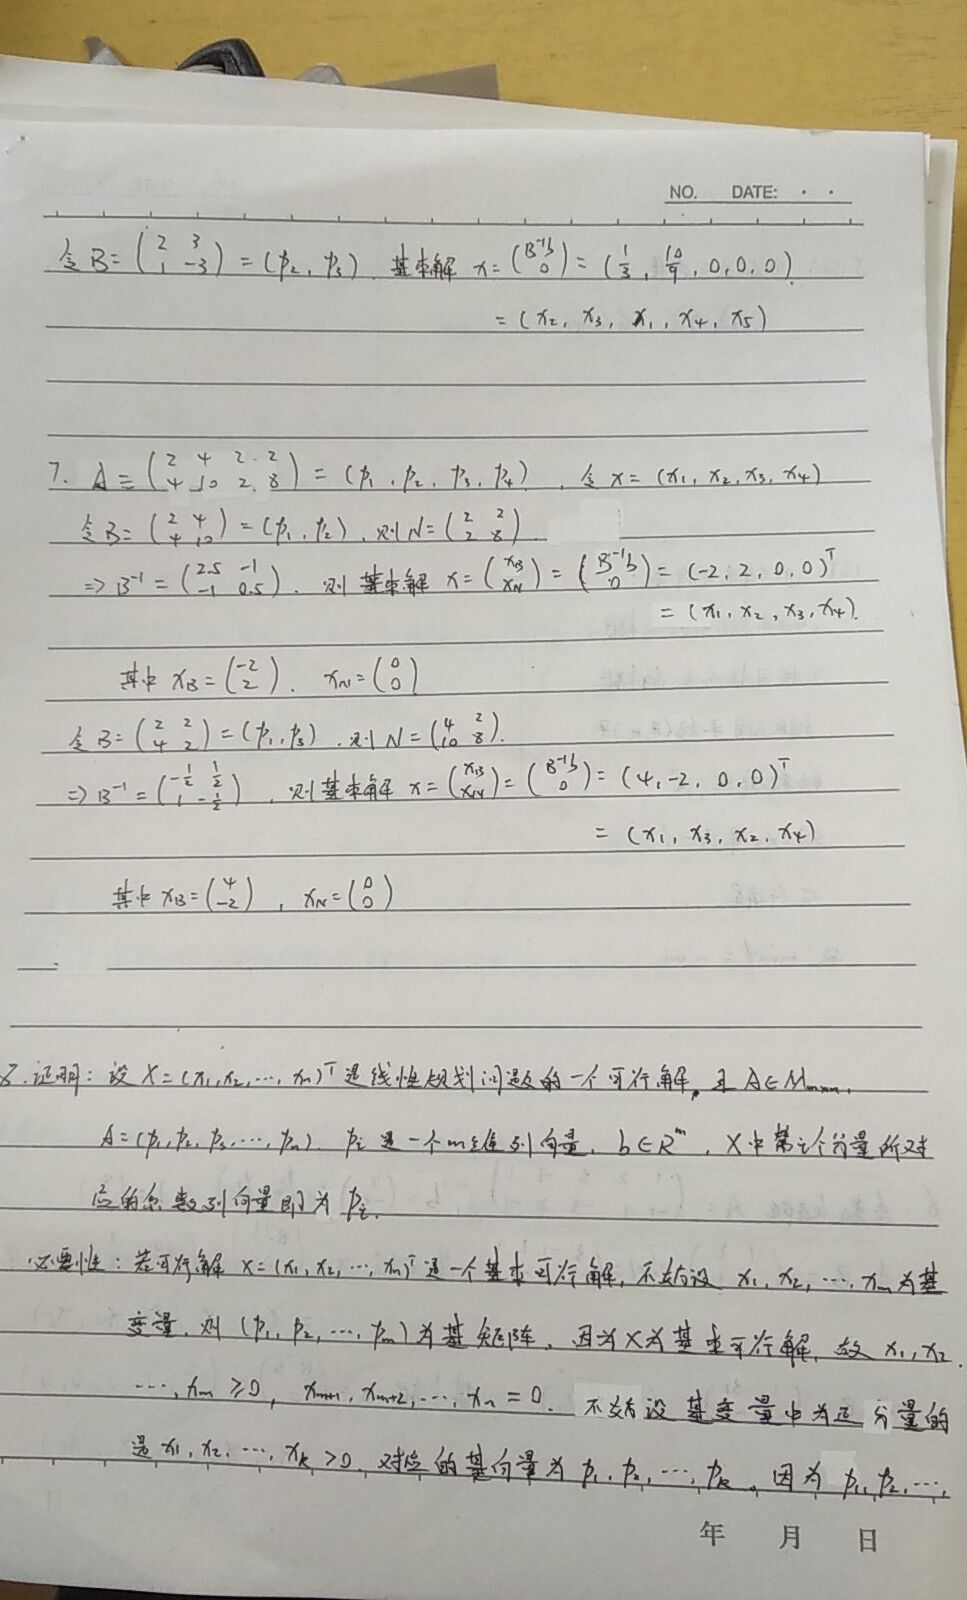 NO. DATE: · ·
令 B = (2 3 / 1 -3) = (p₂, p₃). 基本解 x = (B⁻¹b / 0) = (1/3, 10/9, 0, 0, 0)
= (x₂, x₃, x₁, x₄, x₅)
7. A = (2 4 2 2 / 4 10 2 8) = (p₁, p₂, p₃, p₄), 令 x = (x₁, x₂, x₃, x₄)
令 B = (2 4 / 4 10) = (p₁, p₂), 则 N = (2 2 / 2 8).
⇒ B⁻¹ = (2.5 -1 / -1 0.5). 则 基本解 x = (x_B / x_N) = (B⁻¹b / 0) = (-2, 2, 0, 0)ᵀ
= (x₁, x₂, x₃, x₄).
其中 x_B = (-2 / 2). x_N = (0 / 0)
令 B = (2 2 / 4 2) = (p₁, p₃), 则 N = (4 2 / 10 8).
⇒ B⁻¹ = (-1/2 1/2 / 1 -1/2), 则基本解 x = (x_B / x_N) = (B⁻¹b / 0) = (4, -2, 0, 0)ᵀ
= (x₁, x₃, x₂, x₄)
其中 x_B = (4 / -2), x_N = (0 / 0)
8. 证明: 设 X = (x₁, x₂, …, xₙ)ᵀ 是线性规划问题的一个可行解, 且 A ∈ M_{m×n},
A = (p₁, p₂, p₃, …, pₙ). pᵢ 是一个m维列向量, b ∈ Rᵐ, X中第i个分量所对
应的系数列向量即为 pᵢ.
必要性: 若可行解 X = (x₁, x₂, …, xₙ)ᵀ 是一个基本可行解, 不妨设 x₁, x₂, …, xₘ 为基
变量, 则 (p₁, p₂, …, pₘ) 为基矩阵, 因为 X 为基本可行解, 故 x₁, x₂
…, xₘ ≥ 0, xₘ₊₁, xₘ₊₂, …, xₙ = 0. 不妨设基变量中为正分量的
是 x₁, x₂, …, xₖ > 0, 对应的基向量为 p₁, p₂, …, pₖ, 因为 p₁, p₂, …,
年 月 日